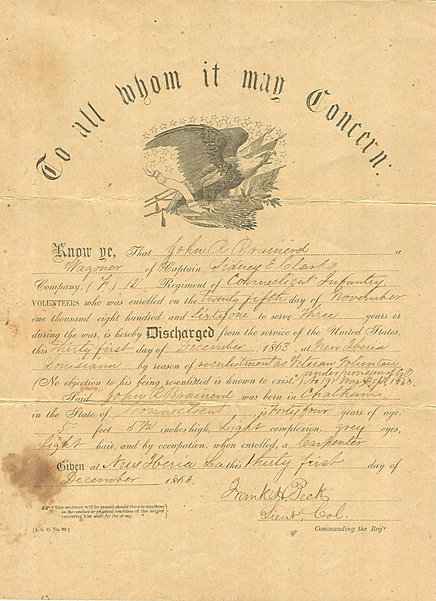 To all whom it may Concern:
Know ye, That John R Brainerd a
Wagoner of Captain Sidney E Clarks
Company, (F,) 12 Regiment of Connecticut Infantry
VOLUNTEERS who was enrolled on the twenty fifth day of November
one thousand eight hundred and Sixty one to serve Three years or
during the war, is hereby Discharged from the service of the United States,
this Thirty first day of December, 1863, at New Iberia
Louisiana by reason of reenlistment as Veteran Volunteer
(No objection to his being reenlisted is known to exist.*) No 191 1863.
Said John R Brainerd was born in Chatham
in the State of Connecticut, is Forty four years of age,
5 feet 8½ inches high, Light complexion, grey eyes,
Light hair, and by occupation, when enrolled, a Carpenter
Given at New Iberia La this thirty first day of
December 1863.
Frank H Peck
Lieut. Col.
Commanding the Reg't
*This sentence will be erased should there be anything
in the conduct or physical condition of the soldier
rendering him unfit for the Army.
[A. G. O. No. 99.]